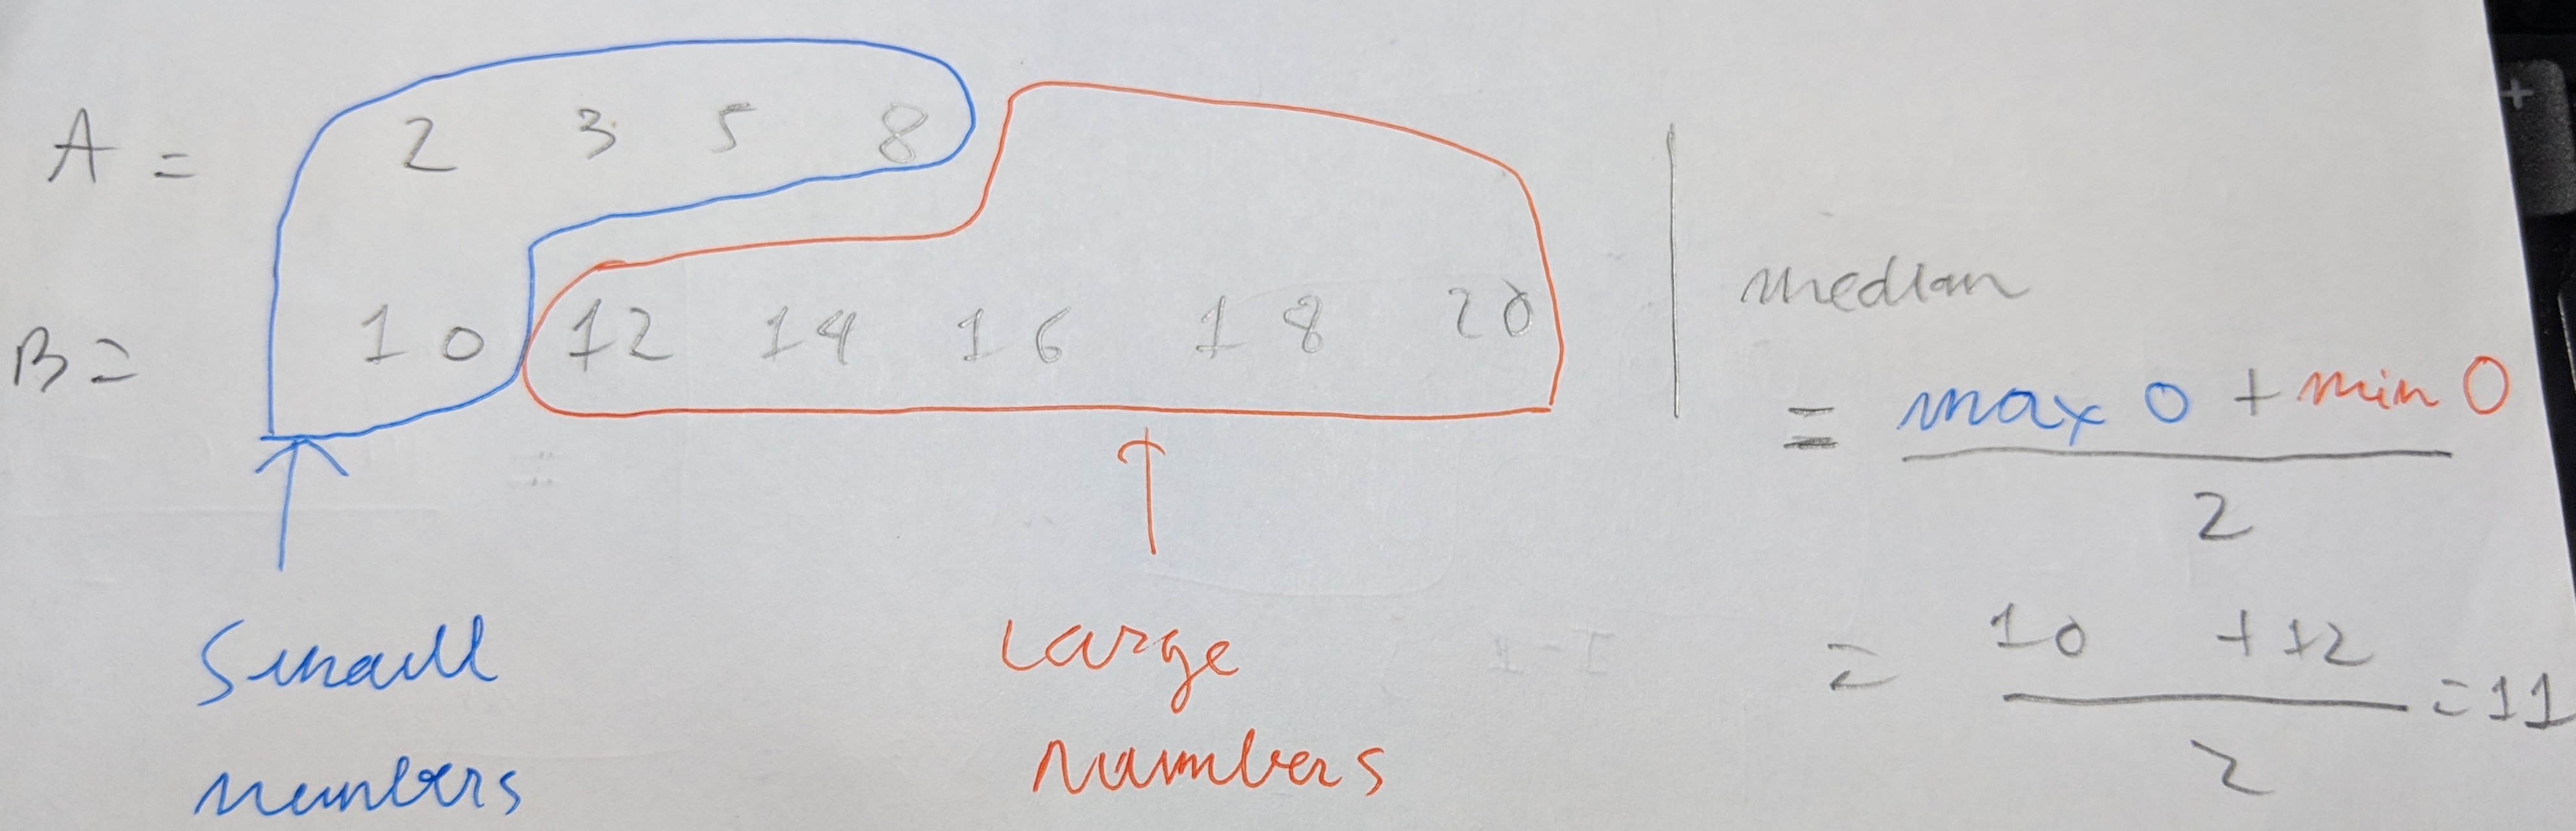 A = 2 3 5 8
B = 10 12 14 16 18 20
small
numbers
Large
Numbers
median
= max O + min O
2
= 10 + 12
2
= 11